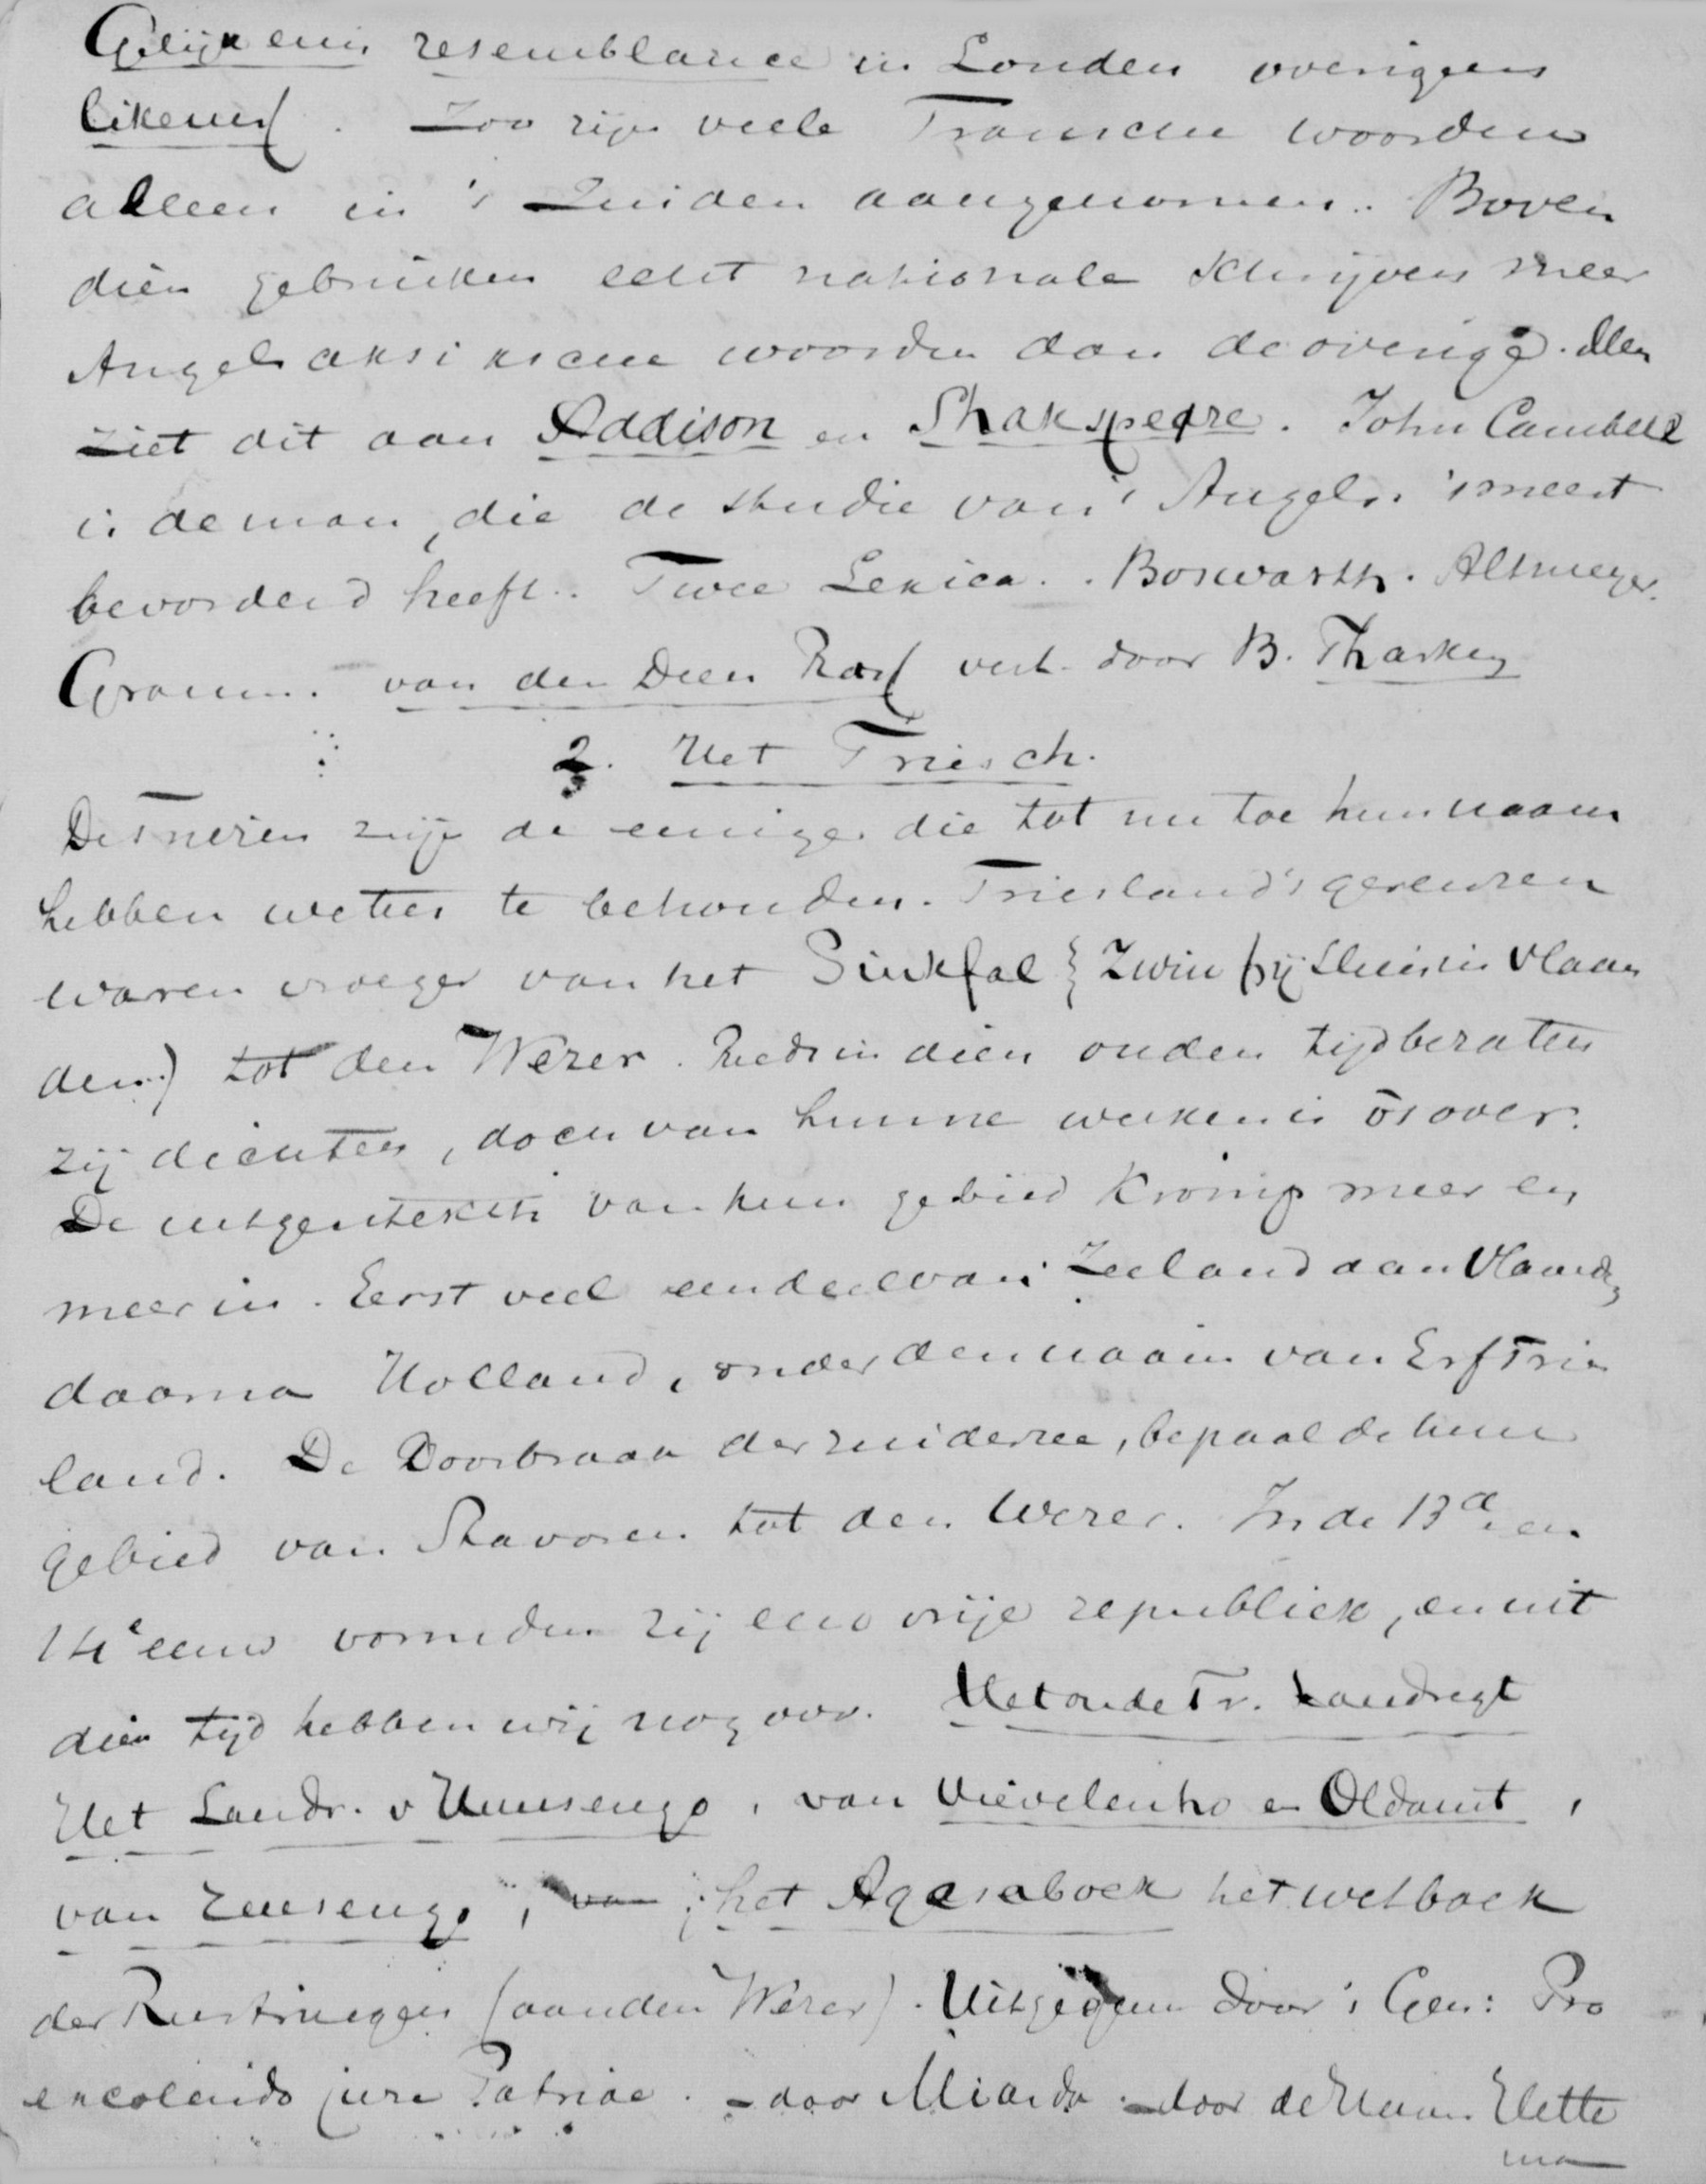 Gelijkenis resemblance in Londen overigens
likeness. Zoo zijn veele Fransche woorden
alleen in 't Zuiden aangenomen. Boven
dien gebruiken echt nationale schrijvers meer
Angelsaksiksche woorden dan de overige. Men
ziet dit aan Addison en Shakspeare. John Cambell
is de man, die de studie van 't Angels. 't meest
bevorderd heeft. Twee Lexica. Boswarth. Altmeyer.
Gramm. van den Deen Rask vert. door B. Tharken
2. Het Friesch.
De Friezen zijn de eenige die tot nu toe hun naam
hebben weten te behouden. Friesland's grenzen
waren vroeger van het Sinkfal { Zwin bij Sluis in Vlaan
den.) tot den Wezer. Reeds in dien ouden tijd bezaten
zij dichters, doch van hunne werken is 0 over.
De uitgestrekth. van hun gebied kromp meer en
meer in. Eerst veel een deel van Zeeland aan Vlaand
daarna Holland, onder den naam van Erf Fries
land. De Doorbraak der zuiderzee, bepaalde hun
gebied van Stavoren tot den Wezer. In de 13e en
14e eeuw vormden zij eene vrije republiek, en uit
dien tijd hebben wij nog over. Het oude Fr. Landregt
Het Landr. v Hunsengo, van Vievelenho en Oldamt,
van Emsengo, van ; het Agesaboek het wetboek
der Rustringers (aan den Wezer). Uitgegeven door 't Gen: Pro
excolendo jure Patriae. - door Miarda. - door de Haan Hette
ma